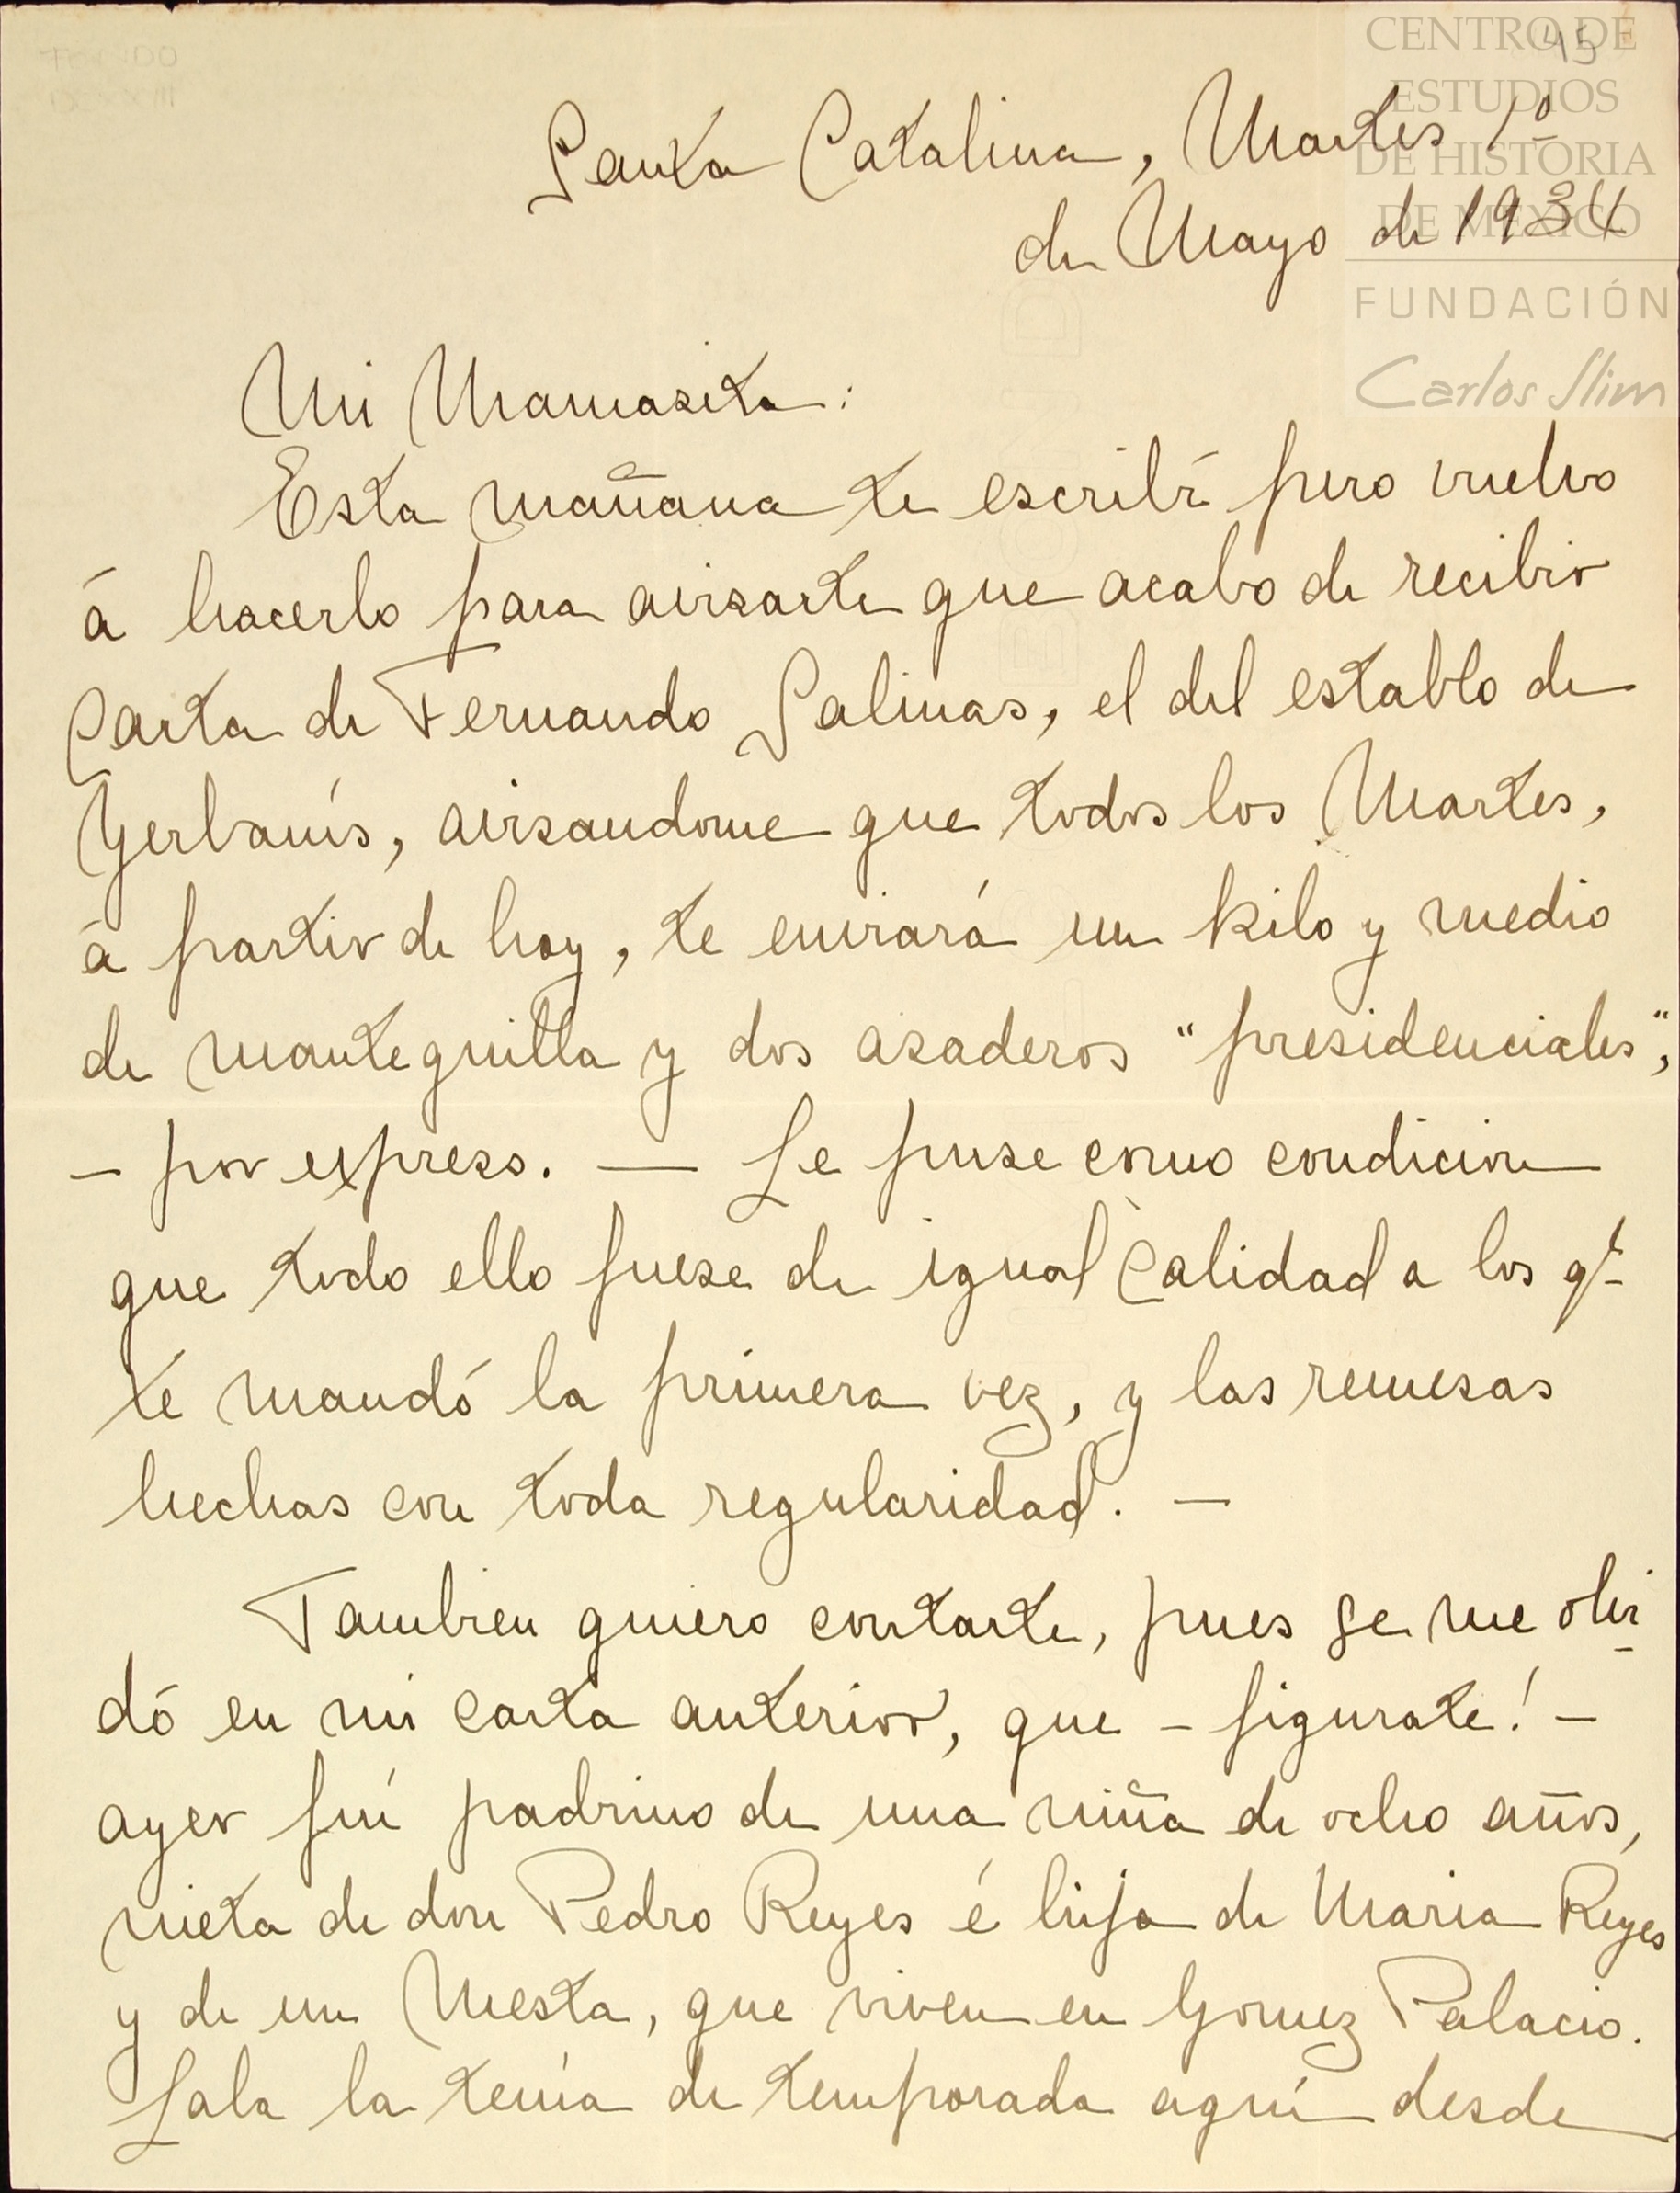 45
CENTRO DE
ESTUDIOS
DE HISTORIA
DE MEXICO
FUNDACIÓN
Carlos Slim
Santa Catalina, Martes 1º
de Mayo de 1934
Mi Mamasita:
Esta mañana te escribí pero vuelvo
á hacerlo para avisarte que acabo de recibir
Carta de Fernando Salinas, el del establo de
Yerbanís, avisandome que todos los Martes,
á partir de hoy, te enviará un kilo y medio
de mantequilla y dos asaderos "presidenciales",
— por expreso. — Le puse como condicion
que todo ello fuese de igual Calidad a los qe
te mandó la primera vez, y las remesas
hechas con toda regularidad. —
Tambien quiero contarte, pues se me olvi
dó en mi carta anterior, que — figurate! —
ayer fuí padrino de una niña de ocho años,
nieta de don Pedro Reyes é hija de Maria Reyes
y de un Mesta, que viven en Gomez Palacio.
Lala la tenía de temporada aquí desde